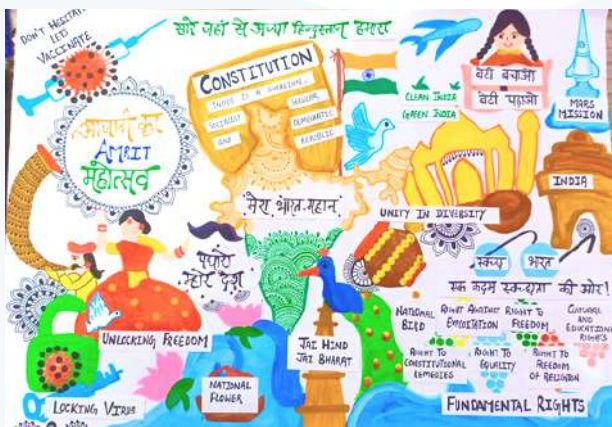 DON'T HESITATE
LETS
VACCINATE
सारे जहाँ से अच्छा हिन्दुस्तान हमारा
CONSTITUTION
INDIA IS A SOVEREIGN,
SOCIALIST
SECULAR
DEMOCRATIC
AND
REPUBLIC
CLEAN INDIA
GREEN INDIA
बेटी बचाओ
बेटी पढ़ाओ
MARS
MISSION
आजादी का
AMRIT
महोत्सव
मेरा भारत महान
UNITY IN DIVERSITY
INDIA
पधारो
म्हारे देश
स्वच्छ भारत
एक कदम स्वच्छता की ओर!
UNLOCKING FREEDOM
JAI HIND
JAI BHARAT
NATIONAL
BIRD
RIGHT AGAINST
EXPLOITATION
RIGHT TO
FREEDOM
CULTURAL
AND
EDUCATIONAL
RIGHTS
RIGHT TO
CONSTITUTIONAL
REMEDIES
RIGHT TO
EQUALITY
RIGHT TO
FREEDOM
OF RELIGION
LOCKING VIRUS
NATIONAL
FLOWER
FUNDAMENTAL RIGHTS